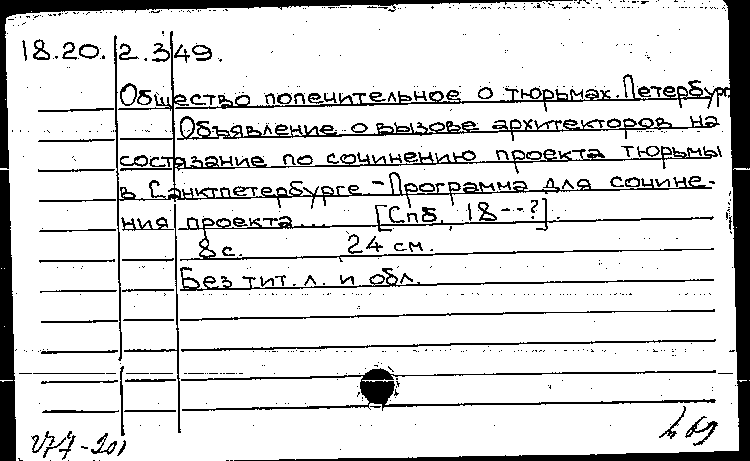 18.20.2.349.
Общество попечительное о тюрьмах. Петербург
Объявление о вызове архитекторов на
состязание по сочинению проекта тюрьмы
в Санктпетербурге – Программа для сочине-
ния проекта... [Спб., 18--?].
8 с. 24 см.
Без тит. л. и обл.